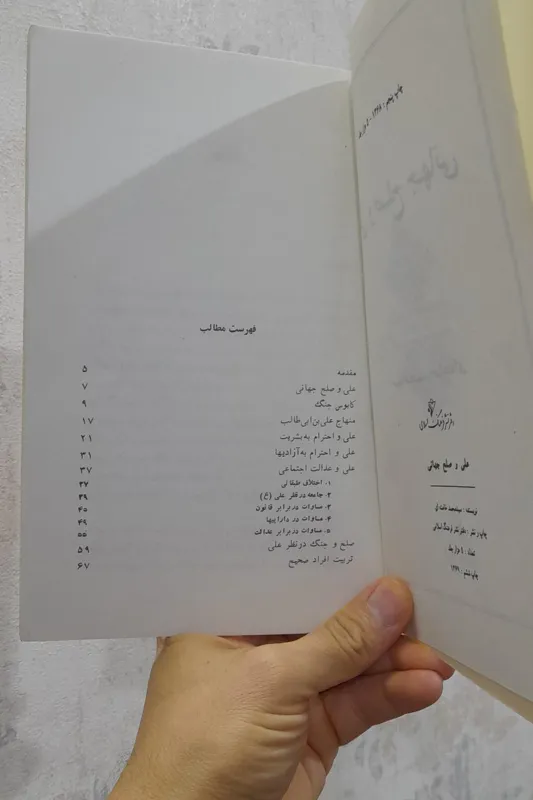 فهرست مطالب
مقدمه ۵
علی و صلح جهانی ۷
کابوس جنگ ۹
منهاج علی‌بن‌ابی‌طالب ۱۷
علی و احترام به‌بشریت ۲۱
علی و احترام به‌آزادیها ۳۱
علی و عدالت اجتماعی ۳۷
۱. اختلاف طبقاتی ۳۷
۲- جامعه در نظر علی (ع) ۳۹
۳- مساوات در برابر قانون ۴۵
۴- مساوات در داراییها ۴۹
۵- مساوات در برابر عدالت ۵۵
صلح و جنگ در نظر علی ۵۹
تربیت افراد صحیح ۶۷
چاپ پنجم : ۱۳۶۸
دفتر نشر فرهنگ اسلامی
علی و صلح جهانی
نویسنده : سیدمحمد
چاپ و نشر : دفتر نشر فرهنگ اسلامی
تعداد : هزار جلد
چاپ ششم : ۱۳۶۹